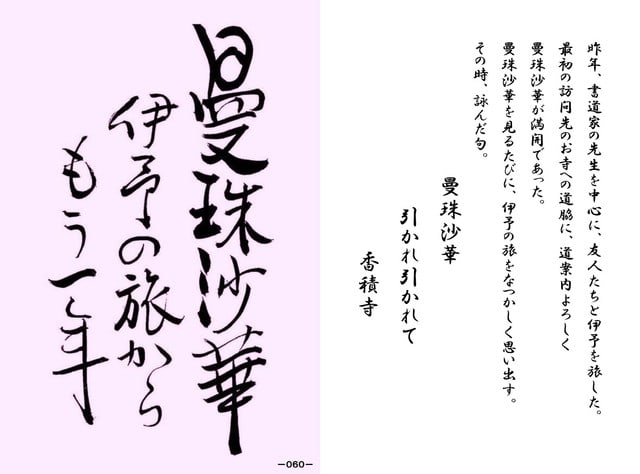 昨年、書道家の先生を中心に、友人たちと伊予を旅した。
最初の訪問先のお寺への道脇に、道案内よろしく
曼珠沙華が満開であった。
曼珠沙華を見るたびに、伊予の旅をなつかしく思い出す。
その時、詠んだ句。
曼珠沙華
引かれ引かれて
香積寺
曼珠沙華
伊予の旅から
もう一年
－060－